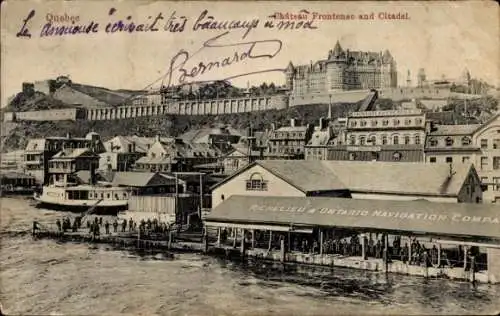 Quebec
Château Frontenac and Citadel.
écrivait très beaucoup à
Bernard
RICHELIEU & ONTARIO NAVIGATION COMPA